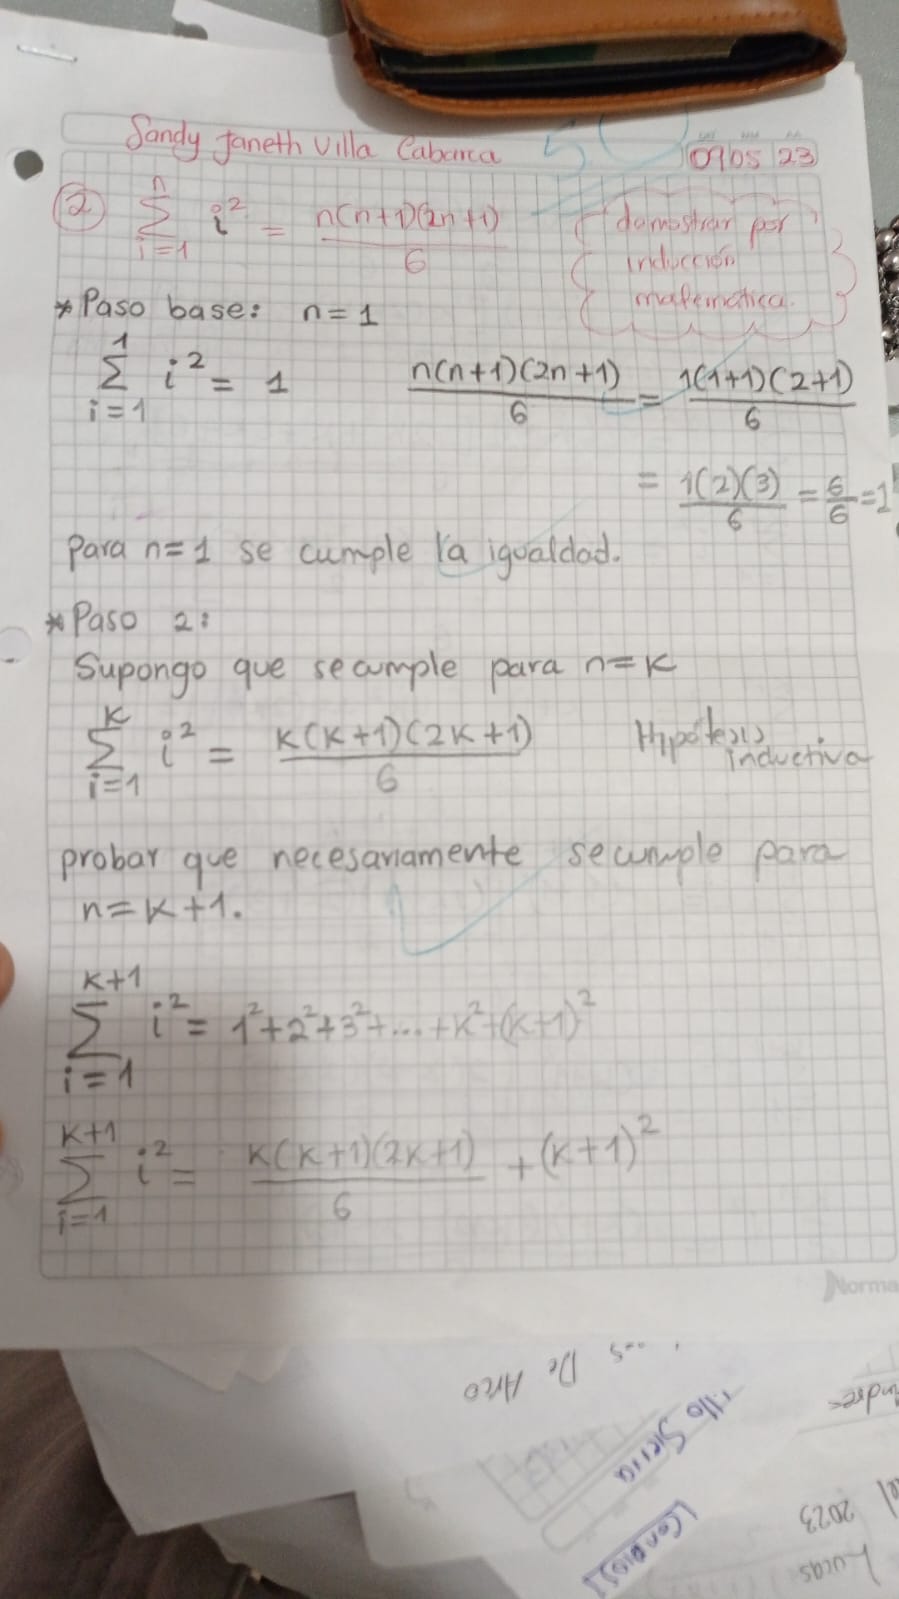 Sandy Janeth Villa Cabarca 50 09 05 23
② \sum_{i=1}^{n} i² = n(n+1)(2n+1)/6
demostrar por
inducción
matemática.
* Paso base: n=1
\sum_{i=1}^{1} i² = 1 n(n+1)(2n+1)/6 = 1(1+1)(2+1)/6
= 1(2)(3)/6 = 6/6 = 1
Para n=1 se cumple la igualdad.
* Paso 2:
Supongo que se cumple para n=K
\sum_{i=1}^{K} i² = K(K+1)(2K+1)/6 Hipótesis
inductiva
probar que necesariamente se cumple para
n=K+1.
\sum_{i=1}^{K+1} i² = 1²+2²+3²+...+K²+(K+1)²
\sum_{i=1}^{K+1} i² = K(K+1)(2K+1)/6 + (K+1)²
Norma
De Arco
Sierra
2023
Lucas